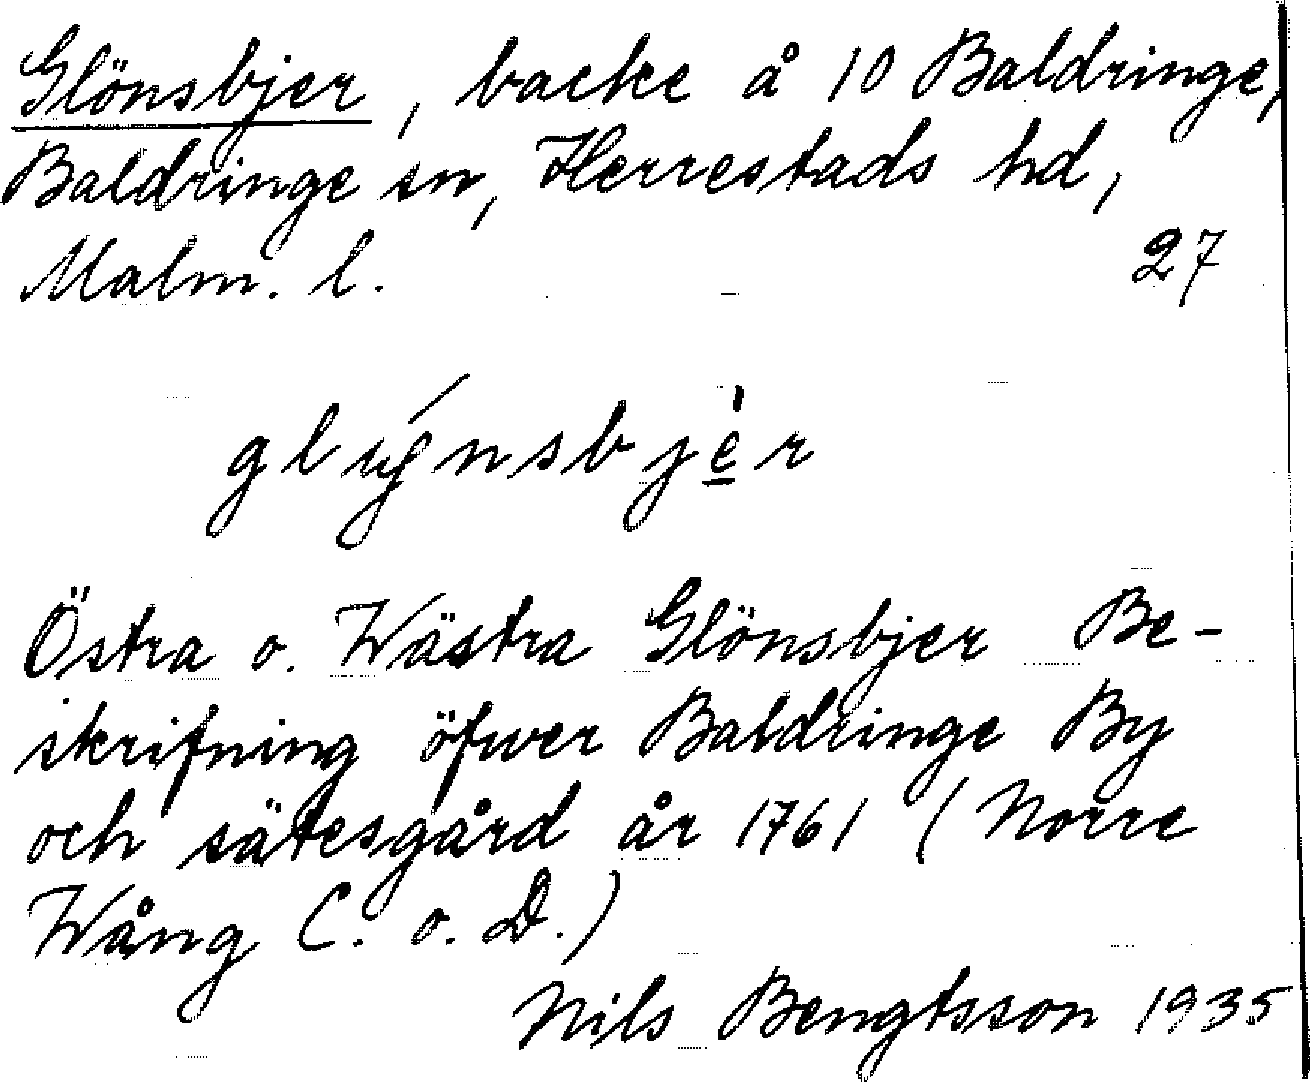 Glönsbjer, backe å 10 Baldringe,
Baldringe sn, Herrestads hd,
Malm. l. 27
glýnsbjè̱r
Östra o. Wästra Glönsbjer Be-
skrifning öfwer Baldringe By
och sätesgård år 1761 (Norre
Wång C. o. D.)
Nils Bengtsson 1935